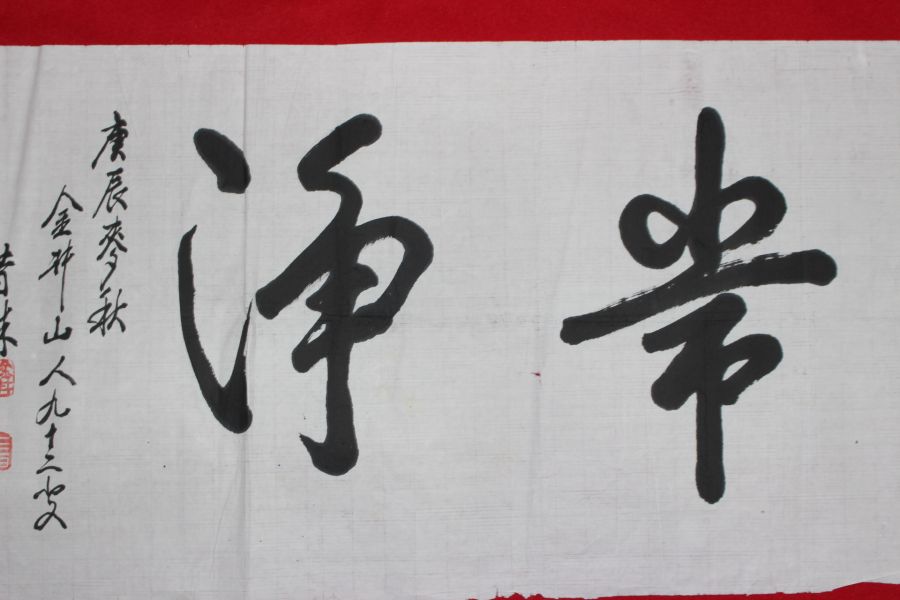 常淨
庚辰麥秋
金井山人九十三叟